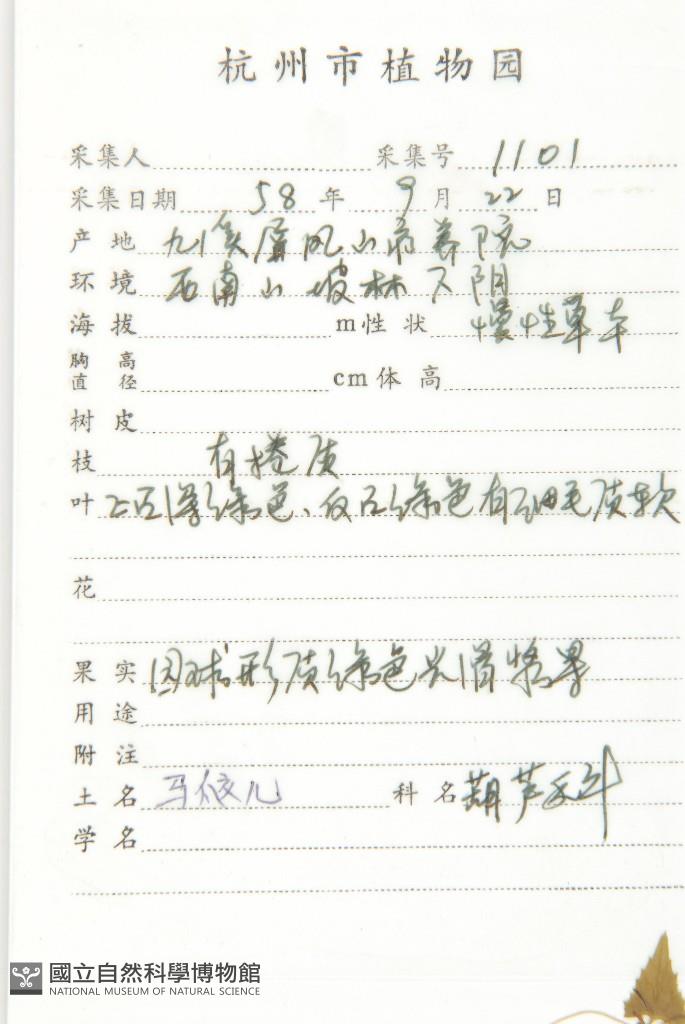 杭州市植物园
采集人 采集号 1101
采集日期 58 年 9 月 22 日
产地 九溪屏风山市养院
环境 西南山坡林下阴
海拔 m 性状 慢性草本
胸高直径 cm 体高
树皮
枝 有捲
叶 上面深绿色、反面绿色有细毛质软
花
果实 园球形 绿色光滑 果
用途
附注
土名 马 儿 科名 葫芦科
学名
國立自然科學博物館
NATIONAL MUSEUM OF NATURAL SCIENCE